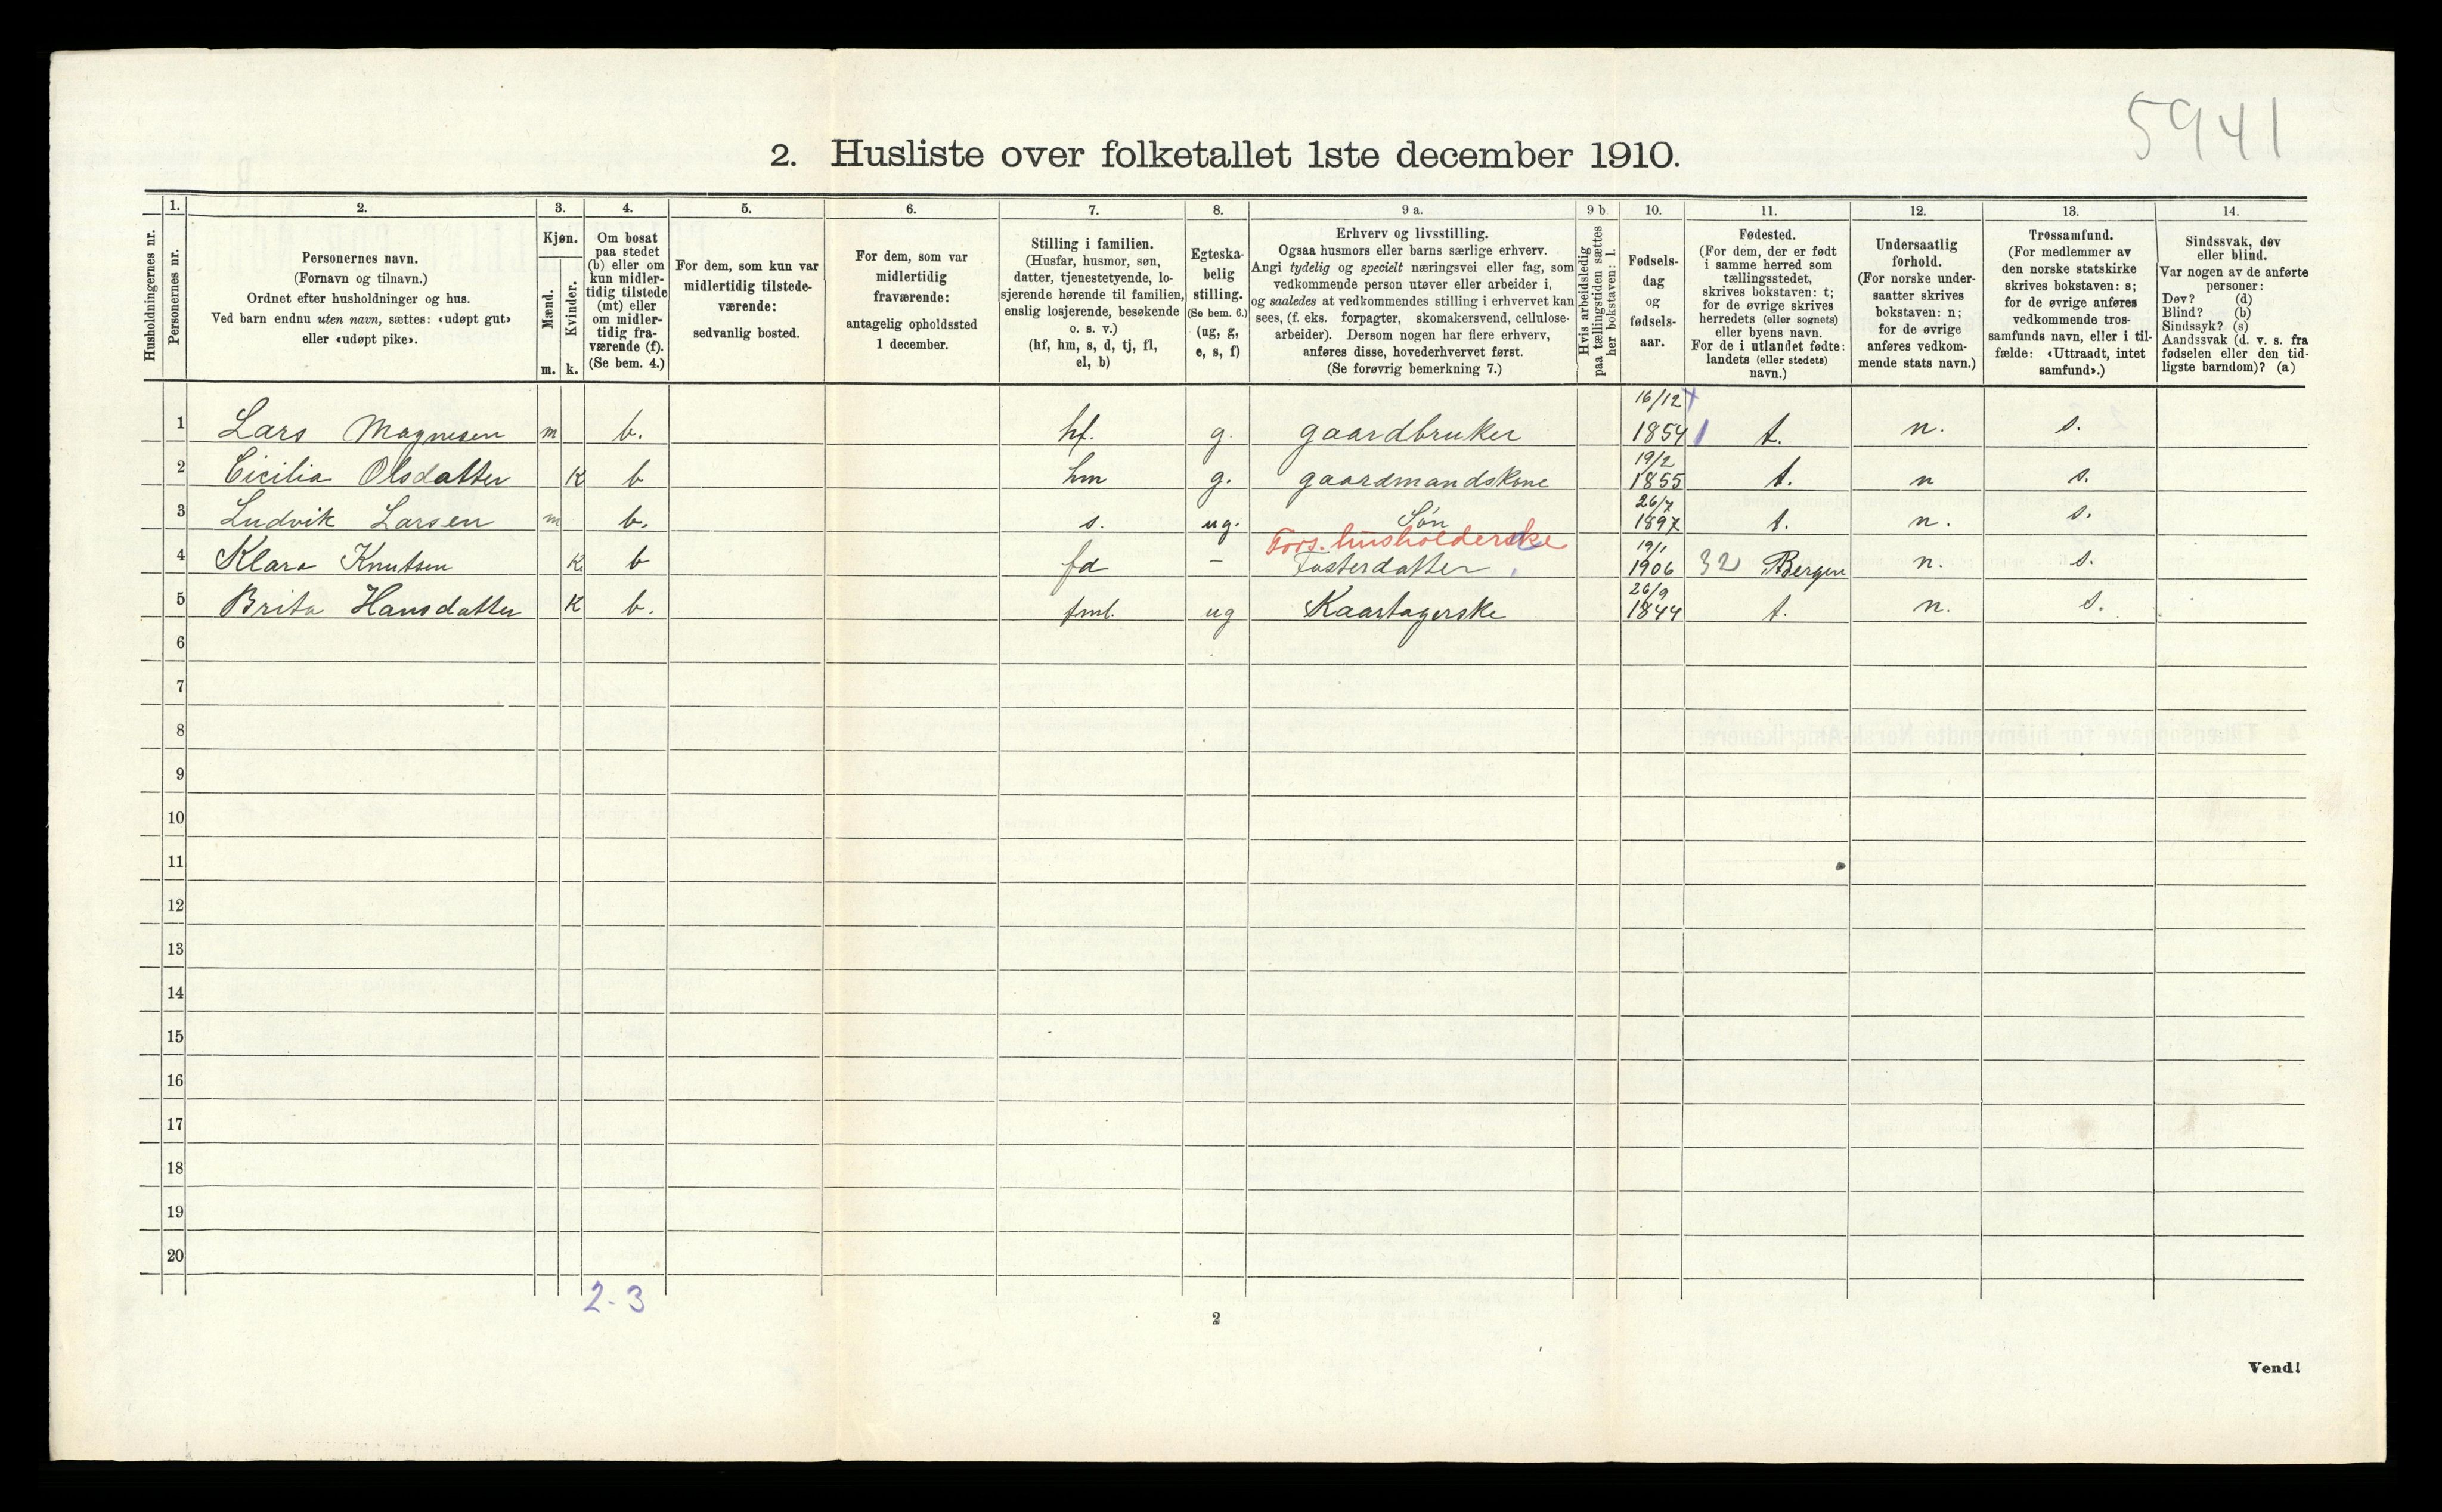 5941
2. Husliste over folketallet 1ste december 1910.
1. 2. 3. 4. 5. 6. 7. 8. 9 a. 9 b 10. 11. 12. 13. 14.
Husholdningernes nr.
Personernes nr.
Personernes navn.
(Fornavn og tilnavn.)
Ordnet efter husholdninger og hus.
Ved barn endnu uten navn, sættes: «udøpt gut»
eller «udøpt pike».
Kjøn.
Mænd.
Kvinder.
m. k.
Om bosat
paa stedet
(b) eller om
kun midler-
tidig tilstede
(mt) eller
om midler-
tidig fra-
værende (f).
(Se bem. 4.)
For dem, som kun var
midlertidig tilstede-
værende:
sedvanlig bosted.
For dem, som var
midlertidig
fraværende:
antagelig opholdssted
1 december.
Stilling i familien.
(Husfar, husmor, søn,
datter, tjenestetyende, lo-
sjerende hørende til familien,
enslig losjerende, besøkende
o. s. v.)
(hf, hm, s, d, tj, fl,
el, b)
Egteska-
belig
stilling.
(Se bem. 6.)
(ug, g,
e, s, f)
Erhverv og livsstilling.
Ogsaa husmors eller barns særlige erhverv.
Angi tydelig og specielt næringsvei eller fag, som
vedkommende person utøver eller arbeider i,
og saaledes at vedkommendes stilling i erhvervet kan
sees, (f. eks. forpagter, skomakersvend, cellulose-
arbeider). Dersom nogen har flere erhverv,
anføres disse, hovederhvervet først.
(Se forøvrig bemerkning 7.)
Hvis arbeidsledig
paa tællingstiden sættes
her bokstaven: l.
Fødsels-
dag
og
fødsels-
aar.
Fødested.
(For dem, der er født
i samme herred som
tællingsstedet,
skrives bokstaven: t;
for de øvrige skrives
herredets (eller sognets)
eller byens navn.
For de i utlandet fødte:
landets (eller stedets)
navn.)
Undersaatlig
forhold.
(For norske under-
saatter skrives
bokstaven: n;
for de øvrige
anføres vedkom-
mende stats navn.)
Trossamfund.
(For medlemmer av
den norske statskirke
skrives bokstaven: s;
for de øvrige anføres
vedkommende tros-
samfunds navn, eller i til-
fælde: «Uttraadt, intet
samfund».)
Sindssvak, døv
eller blind.
Var nogen av de anførte
personer:
Døv? (d)
Blind? (b)
Sindssyk? (s)
Aandssvak (d. v. s. fra
fødselen eller den tid-
ligste barndom)? (a)
16/12
1 Lars Magnesen m b. hf. g. gaardbruker 1854 t. n. s.
19/2
2 Cicilia Olsdatter K b hm g. gaardmandskone 1855 t. n s.
26/7
3 Ludvik Larsen m b. s. ug. Søn 1897 t. n. s.
Fors. husholderske 19/1
4 Klara Knutsen K. b fd - Fosterdatter 1906 32 Bergen n. s.
26/9
5 Brita Hansdatter K b. fml. ug Kaartagerske 1844 t. n. s.
6
7
8
9
10
11
12
13
14
15
16
17
18
19
20
2-3
2
Vend!